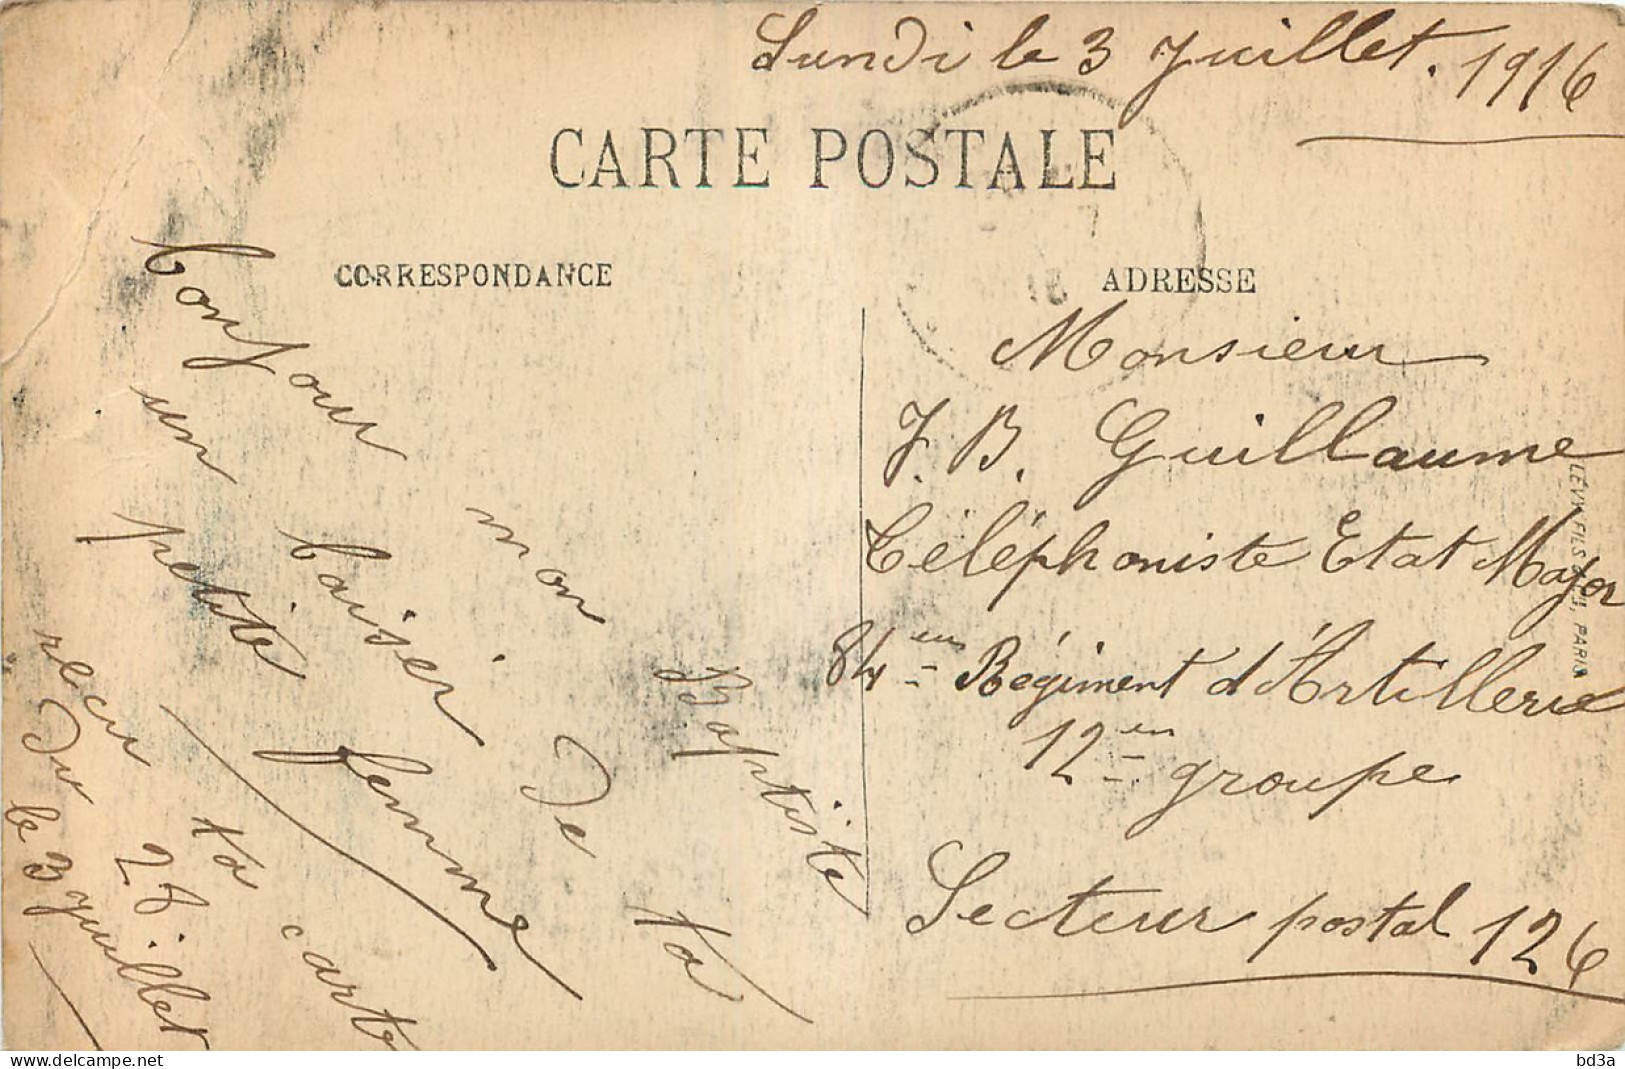 Lundi le 3 Juillet. 1916
CARTE POSTALE
CORRESPONDANCE
ADRESSE
bonjour mon Baptiste
un baiser de ta
petite femme
recu ta carte
du 28
le 3 Juillet
Monsieur
J. B. Guillaume
Téléphoniste Etat Major
84em Régiment d'Artillerie
12em groupe
Secteur postal 126
LEVY FILS & Cie, PARIS
www.delcampe.net
bd3a